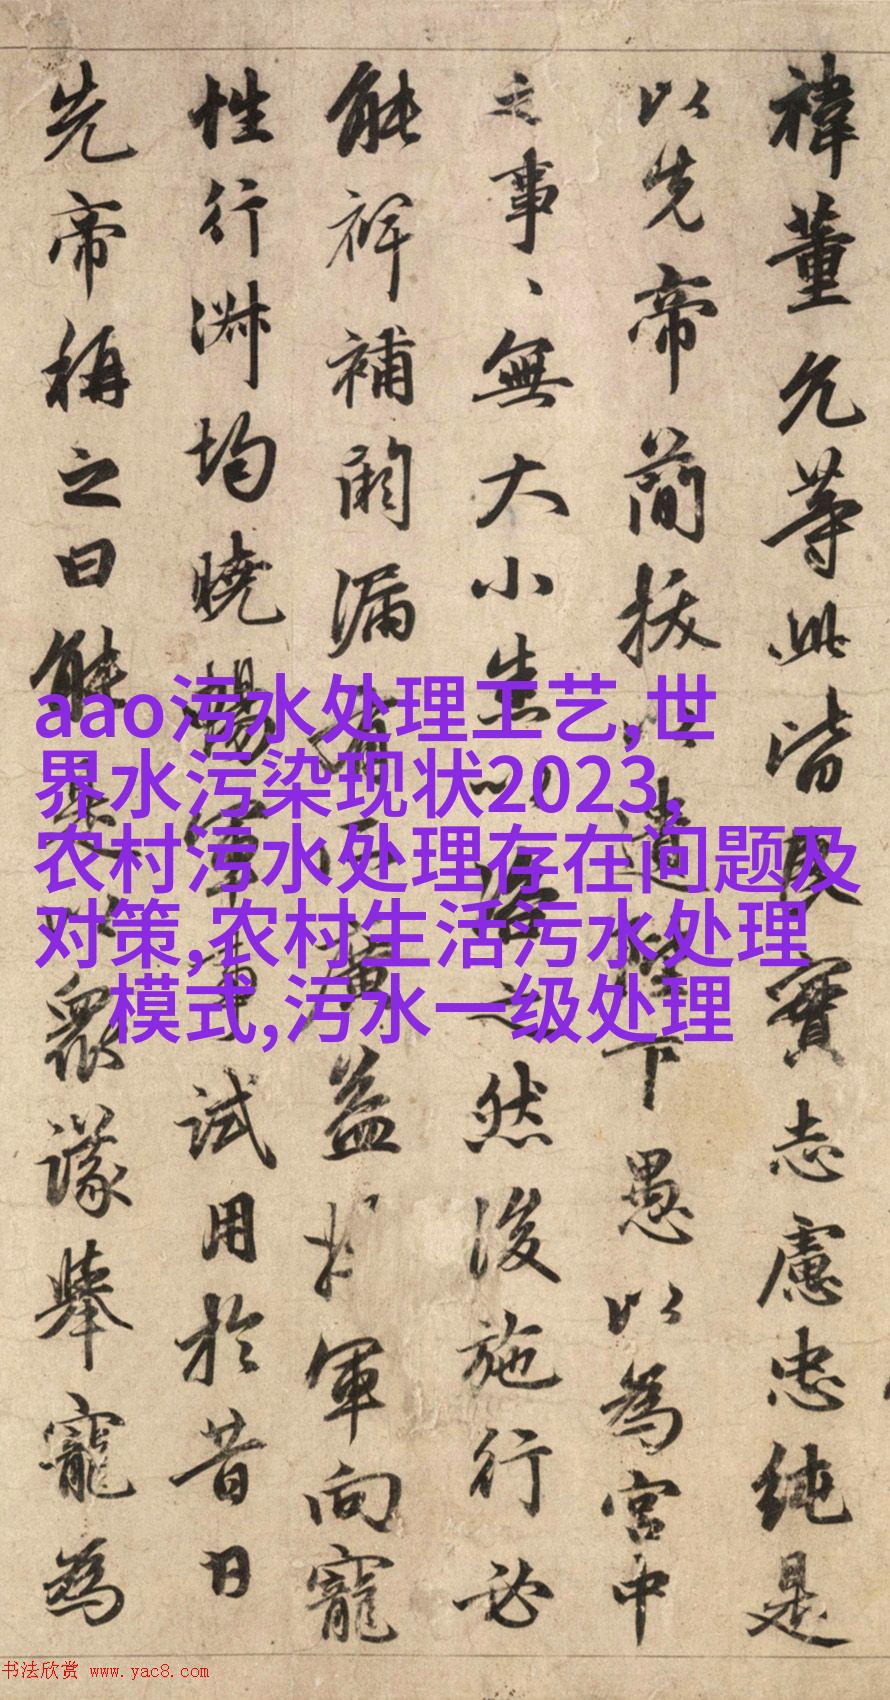 禕董允等此皆良實志慮忠純是
以先帝簡拔以遺陛下愚以為宮中
之事、無大小悉以咨之然後施行必
能裨補闕漏有所廣益將軍向寵
性行淑均曉暢軍事試用於昔日
先帝稱之曰能是以衆議舉寵為
aao污水处理工艺,世
界水污染现状2023,
农村污水处理存在问题及
对策,农村生活污水处理
模式,污水一级处理
书法欣赏 www.yac8.com